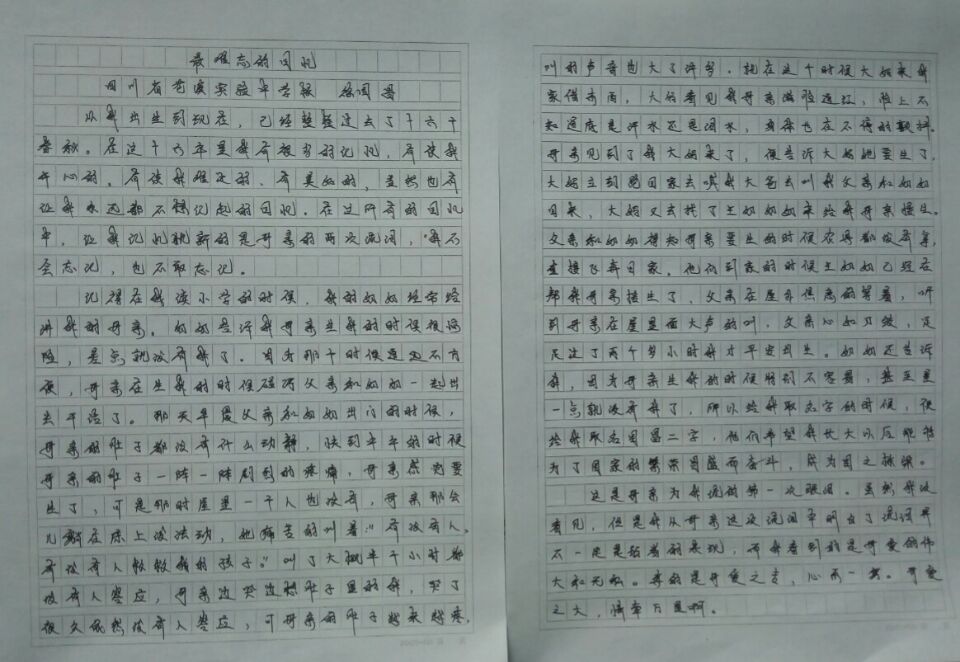 最难忘的回忆
四川省苍溪实验中学校 徐国昌
从我出生到现在，已经整整过去了十六个
春秋。在这十六年里我有很多的记忆，有使我
开心的。有使我难过的、有美好的，当然也有
让我永远都不想记起的回忆。在这所有的回忆
中，让我记忆犹新的是母亲的两次流泪，我不
会忘记，也不敢忘记。
记得在我读小学的时候，我的奶奶经常给
讲我的母亲。奶奶告诉我母亲生我的时候很危
险，差点就没有我了。因为那个时候通迅不方
便，母亲在生我的时候碰巧父亲和奶奶一起出
去干活了。那天早晨父亲和奶奶出门的时候，
母亲的肚子都没有什么动静，快到中午的时候
母亲的肚子一阵一阵剧烈的疼痛，母亲感觉要
生了，可是那时屋里一个人也没有，母亲那会
儿躺在床上没法动，她痛苦的叫着“有没有人，
有没有人救救我的孩子。”叫了大概半个小时都
没有人答应，母亲边哭边摸肚子里的我，哭了
很久依然没有人答应，可母亲的肚子越来越疼，
叫的声音也大了许多。就在这个时候大妈来我
家借东西，大妈看见我母亲满脸通红，脸上不
知道底是汗水还是泪水，身体也在不停的颤抖。
母亲见到了我大妈来了，便告诉大妈她要生了，
大妈立刻跑回家去喊我大爸去叫我父亲和奶奶
回来，大妈又去找了王奶奶来给我母亲接生。
父亲和奶奶得知母亲要生的时候农具都没有拿，
直接飞奔回家。他们到家的时候王奶奶已经在
帮我母亲接生了，父亲在屋外焦急的等着，听
到母亲在屋里面大声的叫，父亲心如刀绞，足
足过了两个多小时我才平安出生。奶奶还告诉
我，因为母亲生我的时候特别不容易，甚至差
一点就没有我了，所以给我取名字的时候，便
给我取名国昌二字，他们希望我长大以后能够
为了国家的繁荣昌盛而奋斗，成为国之栋梁。
这是母亲为我流的第一次眼泪。虽然我没
看见，但是我从母亲这次流泪中明白了流泪并
不一定是软弱的表现，而我看到的是母爱的伟
大和无私。我的是母爱之言，心而一也。母爱
之大，情牵万里啊。